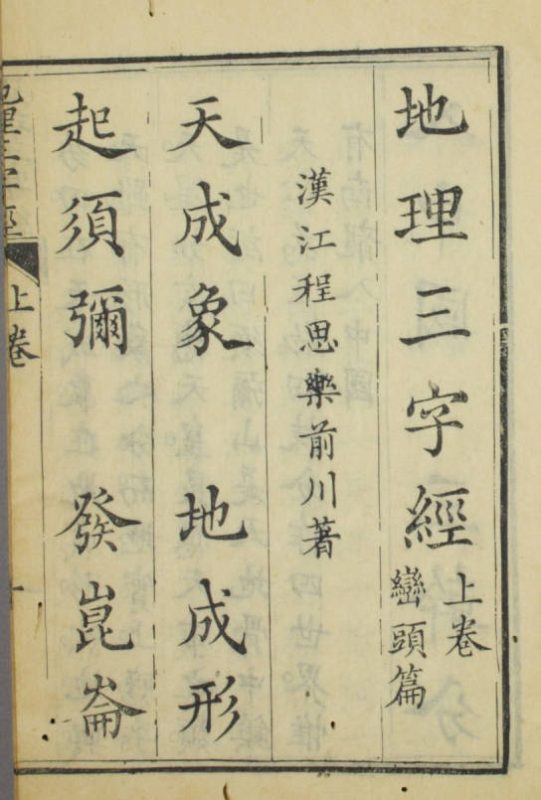 地理三字經 上卷 巒頭篇
漢江程思樂前川著
天成象 地成形
起須彌 發崑崙
地理三字經 上卷